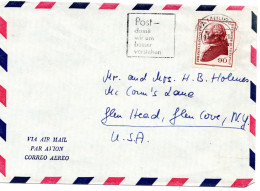 Post-
damit
wir uns
besser
verstehen
90
Mr. and Mrs. H. B. Holmes
Mc Coun's Lane
Glen Head, Glen Cove, N.Y.
U.S.A.
VIA AIR MAIL
PAR AVION
CORREO AEREO